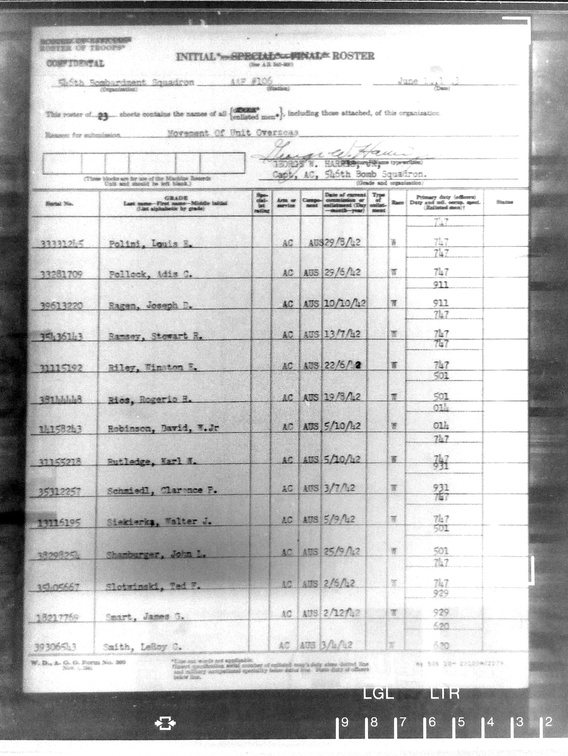 ROSTER OF OFFICERS*
ROSTER OF TROOPS*
CONFIDENTIAL
INITIAL*—SPECIAL*—FINAL* ROSTER
546th Bombardment Squadron AAF #106 June
(Organization) (Station) (Date)
This roster of 23 sheets contains the names of all {officers* enlisted men*}, including those attached, of this organization
Reason for submission Movement Of Unit Overseas
GEORGE W. HARRIS, JR,
Capt, AC, 546th Bomb Squadron.
(Grade and organization)
(These blocks are for use of the Machine Records
Unit and should be left blank.)
Serial No. GRADE Last name—First name—Middle initial (List alphabetically by grade) Spe- cial- ist rating Arm or service Compo- nent Date of current commission or enlistment (Day —month—year) Type of enlist- ment Race Primary duty (officers) Duty and mil. occup. spec. (Enlisted men)† Status
747
33331245 Polini, Louis E. AC AUS 29/8/42 W 747
747
33281709 Pollock, Adis C. AC AUS 29/6/42 W 747
911
39613220 Ragen, Joseph D. AC AUS 10/10/42 W 911
747
35436143 Ramsey, Stewart R. AC AUS 13/7/42 W 747
747
31115192 Riley, Winston E. AC AUS 22/6/42 W 747
501
38144448 Rios, Rogerio H. AC AUS 19/8/42 W 501
014
14158243 Robinson, David, W.Jr AC AUS 5/10/42 W 014
747
31155218 Rutledge, Karl W. AC AUS 5/10/42 W 747
931
35312257 Schmiedl, Clarence P. AC AUS 3/7/42 W 931
747
13116195 Siekierka, Walter J. AC AUS 5/9/42 W 747
501
38298254 Shamburger, John L. AC AUS 25/9/42 W 501
747
35405667 Slotwinski, Ted F. AC AUS 2/6/42 W 747
929
18217769 Smart, James G. AC AUS 2/12/42 W 929
620
39306543 Smith, LeRoy C. AC AUS 3/4/42 W 620
W. D., A. G. O. Form No.
*Line out words not applicable.
LGL LTR
9 8 7 6 5 4 3 2